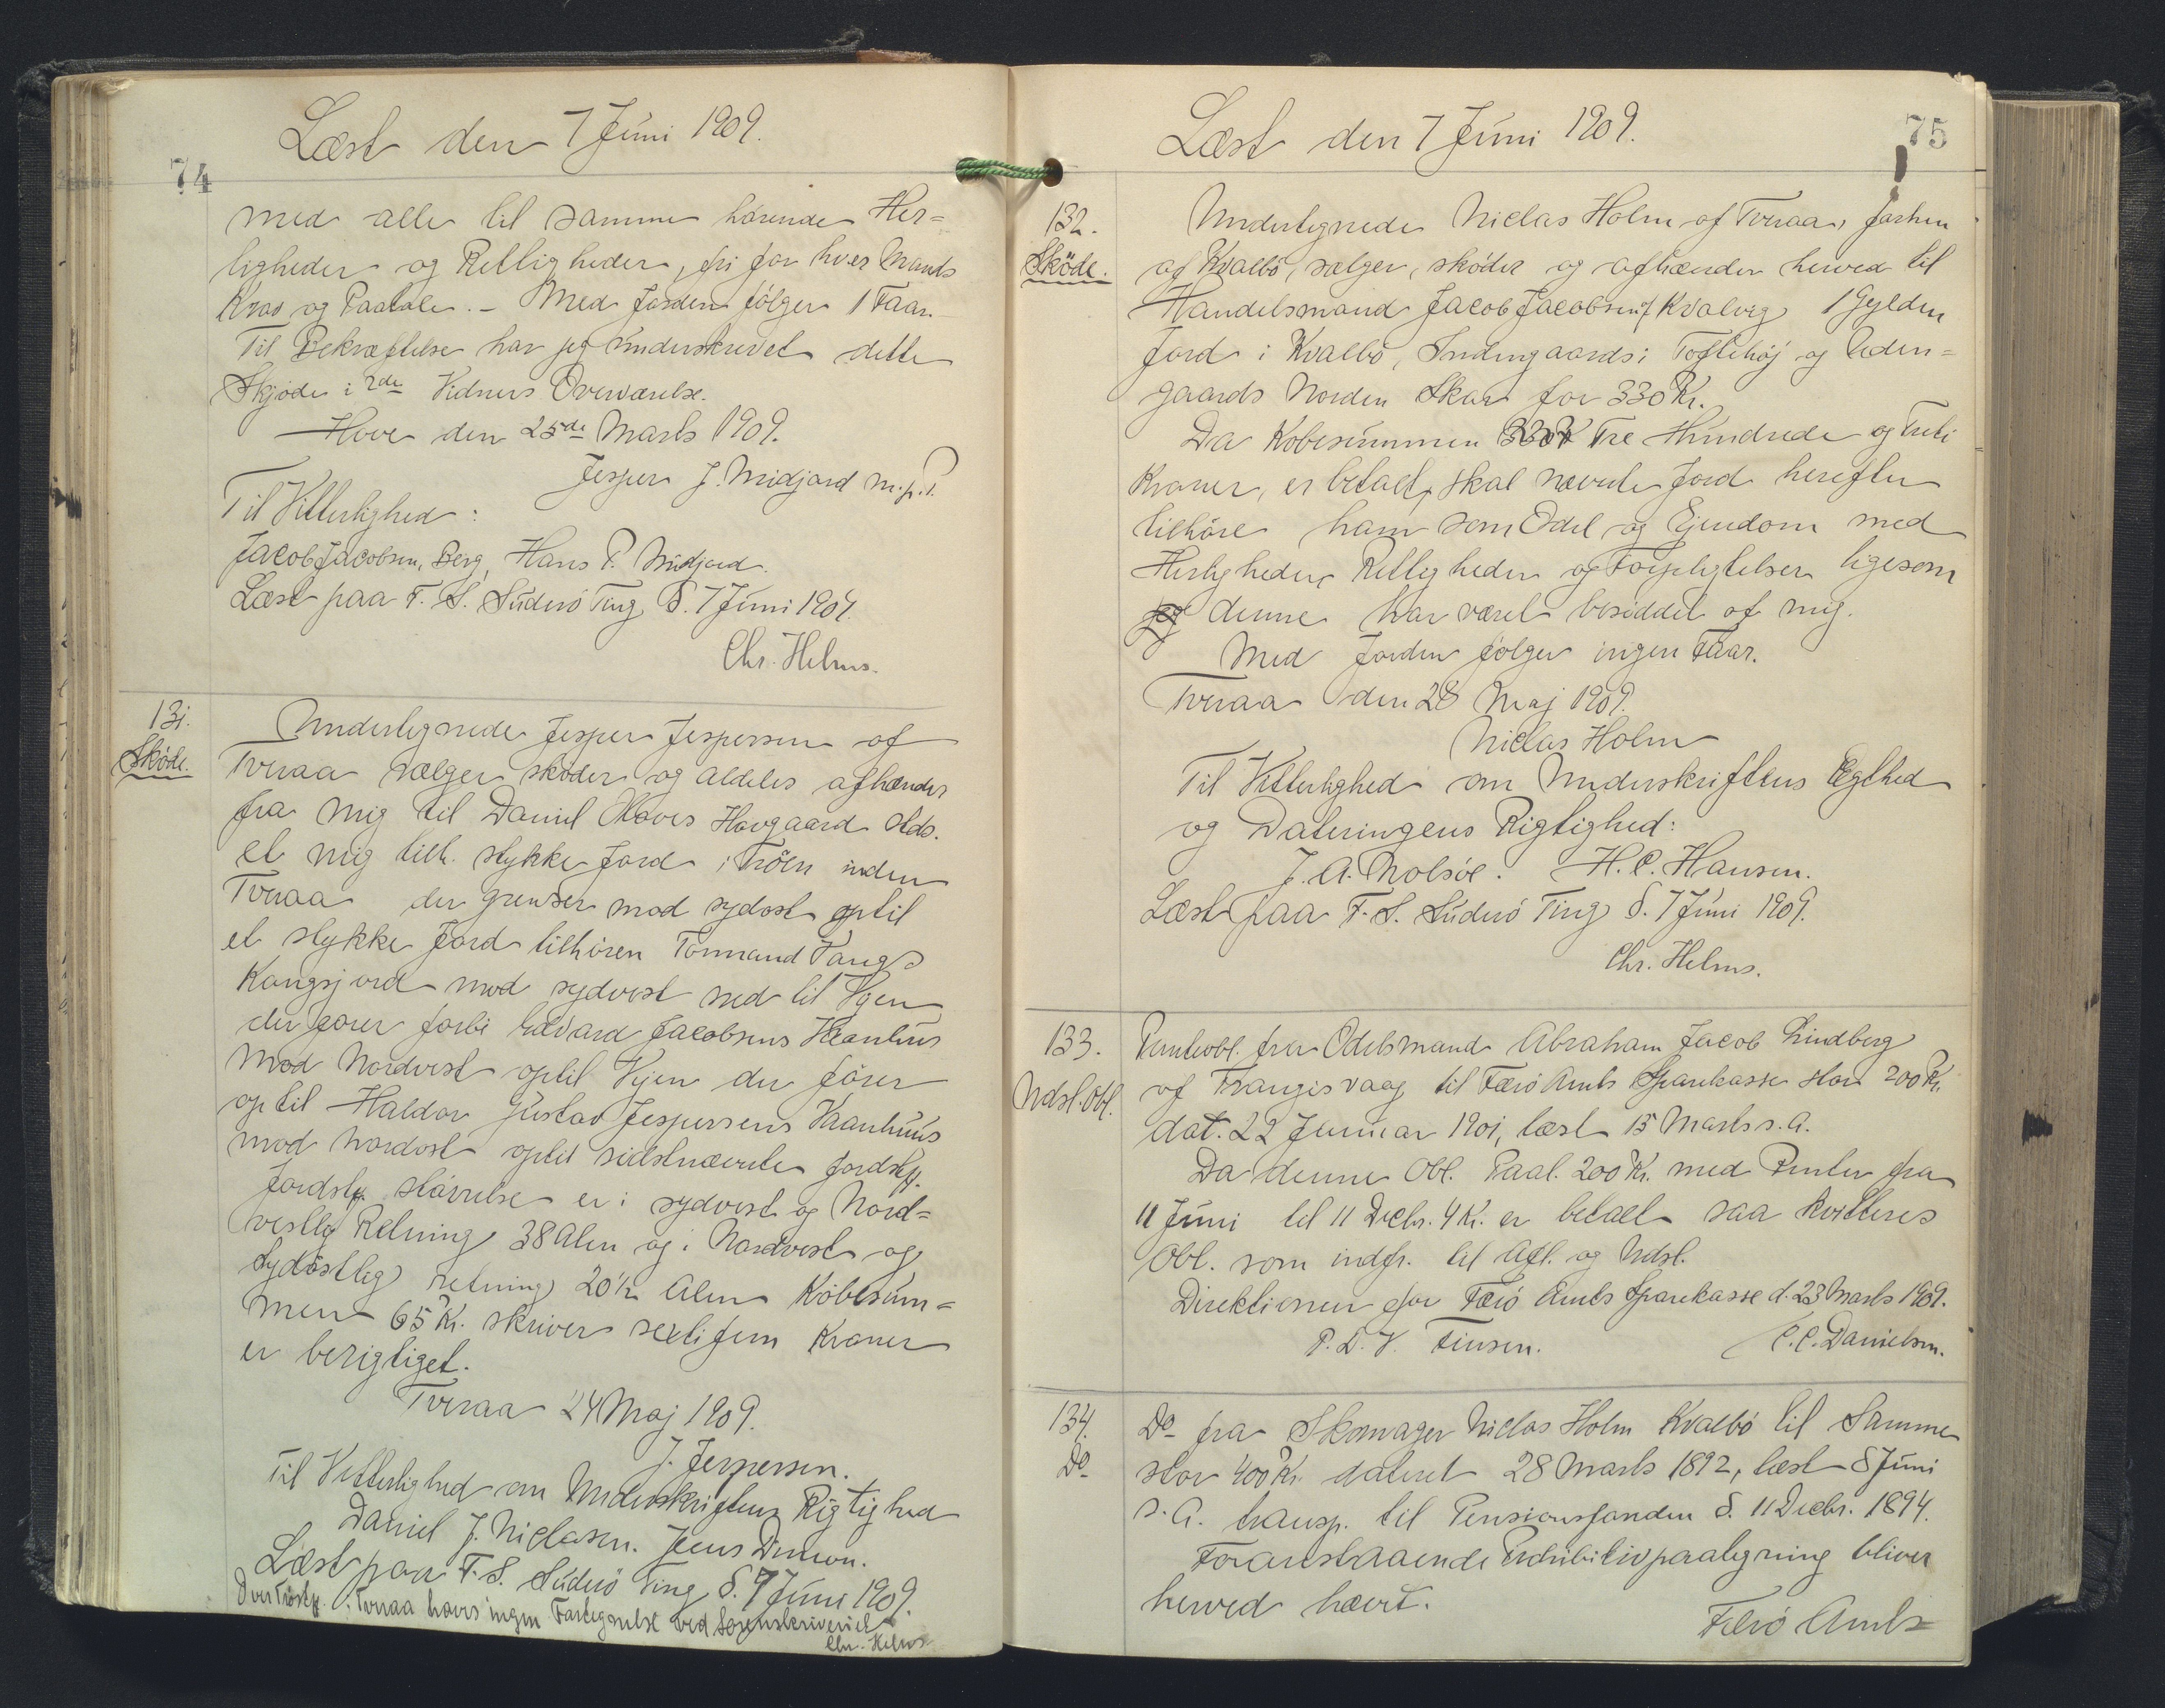 74
Læst den 7 Juni 1909.
med alle til samme hörende Her=
ligheder og Rettigheder, fri for hver Mands
Krav og Paatale. - Med Jorden fölger 1 Faar.
Til Bekræftelse har jeg underskrevet dette
Skjöde i 2de Vidners Overværelse.
Hove den 25de Marts 1909.
Jesper J. Midjord m.p.P.
Til Vitterlighed:
Jacob Jacobsen, Berg, Hans P. Midjord.
Læst paa F. S. Süderö Ting d. 7 Juni 1909.
Chr. Helms.
131.
Sköde.
Undertegnede Jesper Jespersen af
Tveraa sælger sköder og aldeles afhænder
fra mig til Daniel Hovgaard sstds.
et mig tilh. stykke Jord i Tröen inden
Tveraa der grænser mod sydost optil
et stykke Jord tilhören Tormand Vangs
Kongsjord mod sydvest ned til Vejen
der förer forbi Edvard Jacobsens Vaanhus
mod Nordvest optil Vejen der förer
optil Haldor Gustav Jespersens Vaanhuus
mod Nordost optil sidstnævnte Jordstk.
Jordstk. störrelse er i sydvest og Nord=
vestlig Retning 38 Alen og i Nordvest og
Sydöstlig retning 20½ Alen Köbesum=
men 65 Kr. skriver sextifem Kroner
er berigtiget.
Tveraa 24 Maj 1909.
J. Jespersen.
Til Vitterlighed om Underskriftens Rigtighed
Daniel J. Niclasen. Jens Dimon.
Læst paa F. S. Süderö Ting d. 7 Juni 1909.
Over Tröstk. i Tveraa haves ingen Fortegnelse ved Sorenskriveriet
Chr. Helms
75
Læst den 7 Juni 1909.
132.
Sköde.
Undertegnede Niclas Holm af Tveraa, forhen
af Kvalbö, sælger, sköder og afhænder herved til
Handelsmand Jacob Jacobsen af Kvalvig 1 Gylden
Jord i Kvalbö, Indengaards i Toftehöj og Uden=
gaards Norden Skar for 330 Kr.
Da Köbesummen 330 Kr Tre Hundrede og Treti
Kroner, er betalt, skal nævnte Jord herefter
tilhöre ham som Odel og Ejendom med
Herligheder, Rettigheder og Forpligtelser ligesom
jeg denne har været besiddet af mig.
Med Jorden fölger ingen Faar.
Tveraa den 28 Maj 1909.
Niclas Holm
Til Vitterlighed om Underskriftens Ægthed
og Dateringens Rigtighed:
J. A. Nolsöe. H. C. Hansen.
Læst paa F. S. Süderö Ting d. 7 Juni 1909.
Chr. Helms.
133.
Udsl. Obl.
Panteobl. fra Odelsmand Abraham Jacob Lindberg
af Frangisvaag til Færö Amts Sparekasse stor 200 Kr.
dat. 22 Januar 1901, læst 15 Marts s. A.
Da denne Obl. Paal. 200 Kr. med Renter fra
11 Juni til 11 Decbr. 4 Kr. er betalt saa kvitteres
Obl. som indfr. til Afl. og Udsl.
Direktionen for Færö Amts Sparekasse d. 23 Marts 1909.
P. D. V. Finsen. C. C. Danielsen.
134.
Do
Do fra Skomager Niclas Holm Kvalbö til Samme
stor 400 Kr. dateret 28 Marts 1892, læst 8 Juni
s. A. transp. til Pensionsfonden d. 11 Decbr. 1894.
Foranstaaende Prohibitivpaategning bliver
herved hævt.
Færö Amts